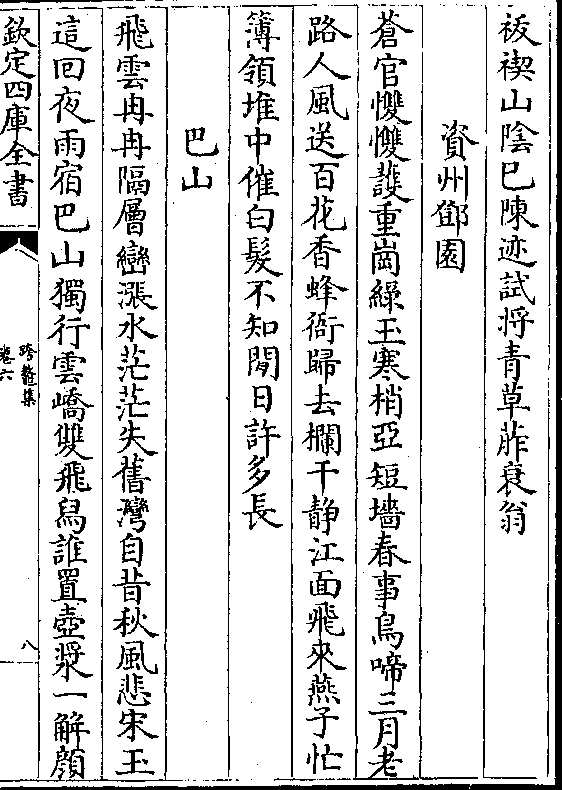 祓禊山陰已陳迹試將青草酢衰翁
資州鄧園
蒼官㩳㩳護重崗綠玉寒梢亞短墻春事鳥啼三月老
路人風送百花香蜂衙歸去欄干静江面飛來燕子忙
簿領堆中催白髪不知閒日許多長
巴山
飛雲冉冉隔層巒漲水茫茫失舊灣自昔秋風悲宋玉
這回夜雨宿巴山獨行雲嶠雙飛舄誰置壺漿一解顔
欽定四庫全書
跨鼇集
卷六
八